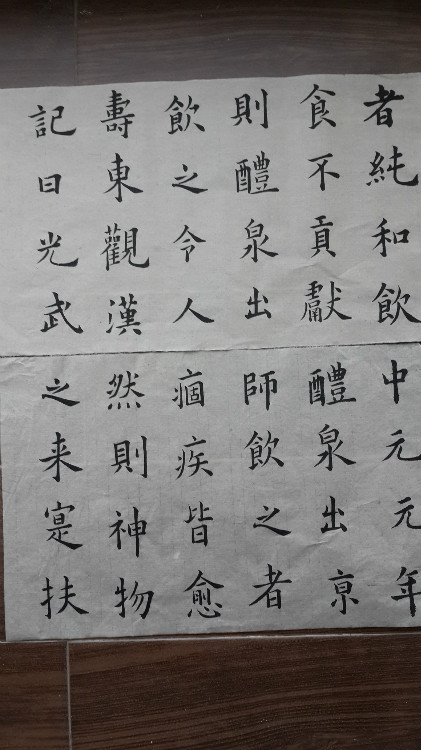 者純和飲
食不貢獻
則醴泉出
飲之令人
壽東觀漢
記曰光武
中元元年
醴泉出亰
師飲之者
痼疾皆愈
然則神物
之来寔扶